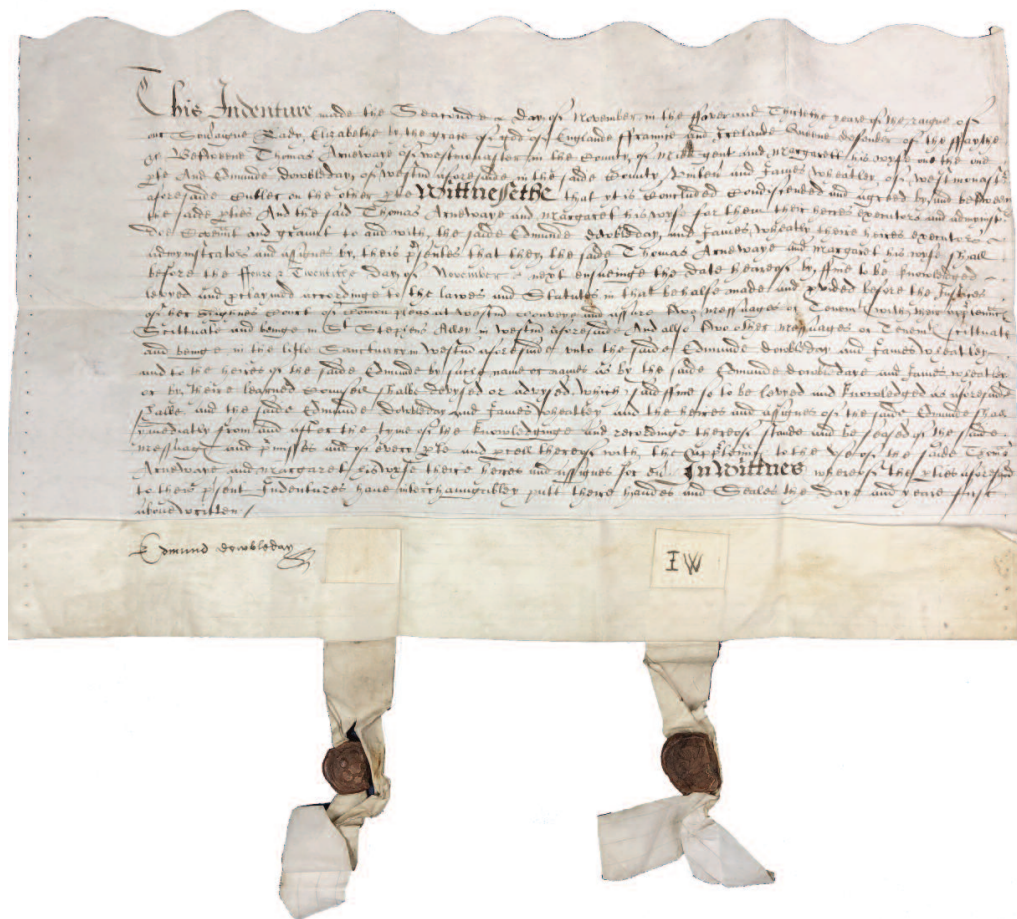 This Indenture made the Seconde Day of November in the ffower and Thirtithe yeare of the raigne of
our Soveraigne Lady Elizabethe by the grace of god of Englande ffraunce and Irelande Queene defender of the ffaythe
&c Betweene Thomas Arneway of westmonaster in the County of Midd gent and Margarett his wyfe on the one
ptie And Edmunde dowbleday of westm aforesaide in the saide County and James wheatley of westmonast
aforesaide Cutler on the other ptie Wittnessethe that yt is concluded Condiscended and agreed by and betweene
the saide pties And the said Thomas Arnewaye and Margaret his wyfe for them their heires executors and
doe Covenn't and graunt to and with the saide Edmunde dowbleday and James wheatly theire heires executors
administrators and assignes by theis p'sentes that they the saide Thomas Arnewaye and Margaret his wyfe shall
before the Twentithe Day of November next ensueinge the date hereof by ffine to be knowledged
levyed and p'claymed accordinge to the lawes and Statutes in that behalfe made and p'vided before the Justices
of her highnes Court of Comon pleas at westm convey and assure Two messuages or Tenem'ts with
Scittuate and beinge in St Stephens Alley in westm aforesaide And also Two other messuages or Tenem'ts scittuate
and beinge in the little Sanctuary in westm aforesaide unto the saide Edmunde dowbleday and James wheatley
and to the heires of the saide Edmunde by such name or names as by the saide Edmunde dowbledaye and James wheatley
or by theire learned Counsell shalbe devysed or advysed which said ffine so to be levyed and knowledged as aforesaide
shalbe and the saide Edmunde dowbleday and James wheatley and the heires and assignes of the saide Edmunde shall
ymediatly from and after the tyme of the knowledginge and recordinge thereof stande and be seased of the saide
messuages and p'misses and of every pte and p'cell thereof with the to the use of the saide Thomas
Arneway and Margaret his wyfe theire heires and assignes for ev' In Wittnes whereof the pties aforesaid
to theis p'sent Indentures have interchaungeably putt theire handes and Seales the Daye and yeare first
above written /
Edmund dowbleday
IW